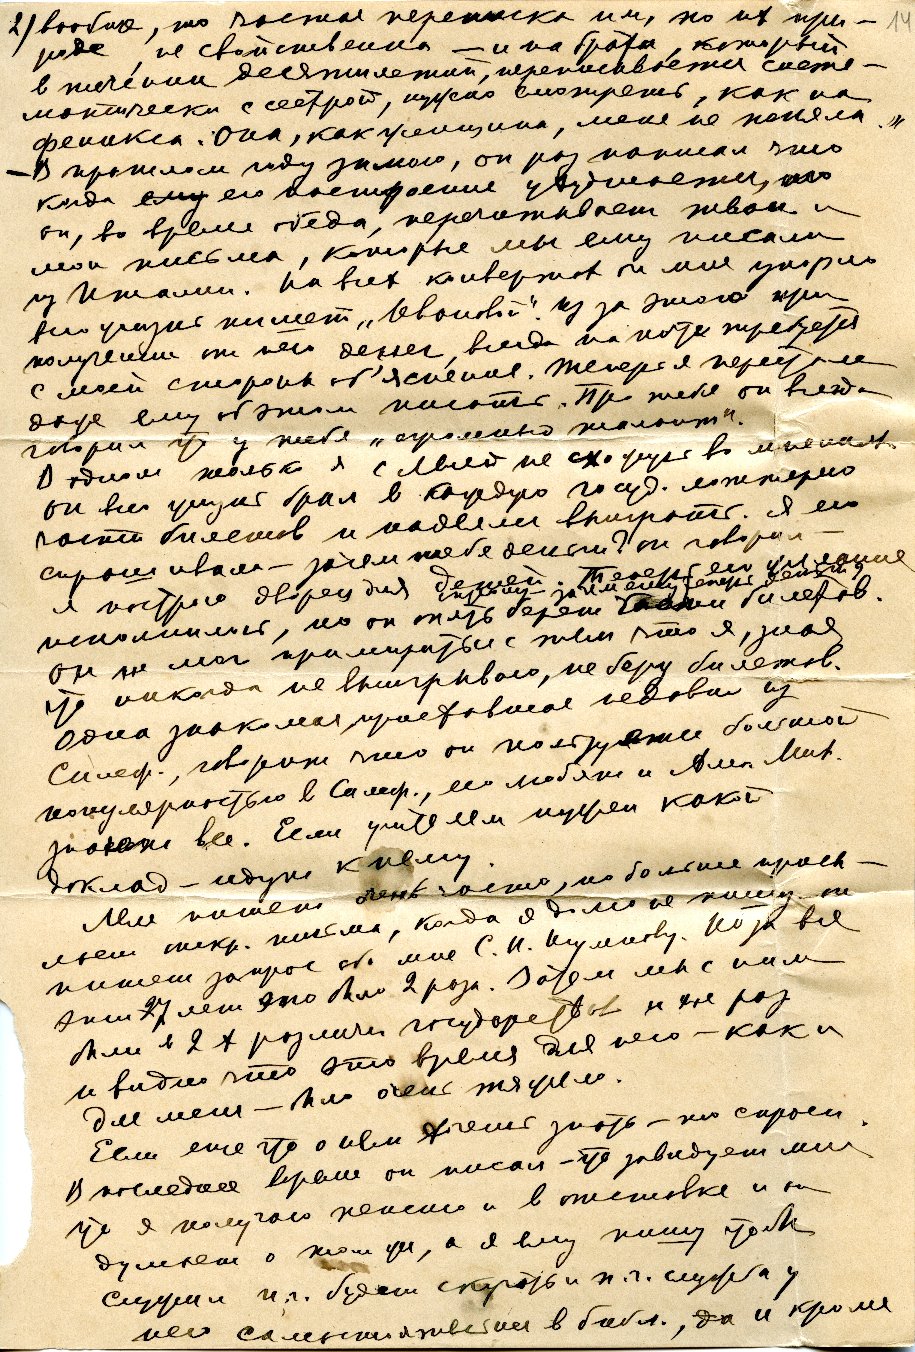 14
2) вообще, то частая переписка им, по их при-
роде, не свойственна — и на брата, который
в течении десятилетий, переписывается систе-
матически с сестрой, нужно смотреть, как на
феникса. Она, как женщина, меня не поняла."
— В прошлом году зимою, он раз написал что
когда ему его настроение ухудшается, то
он, во время обеда, перечитывает твои и
мои письма, которые мы ему писали
из Италии. На всех конвертах он мне упорно
всю жизнь пишет „Ивановой". Из за этого при
получении от него денег, всегда на почте требуется
с моей стороны об'яснение. Теперь я перестала
даже ему об этом писать. Про тебя он всегда
говорил что у тебя „огромный талант".
В одном только я с Лёлей не схожусь во мнениях.
Он всю жизнь брал в каждую госуд. лотерею
часть билетов и надеялся выиграть. Я его
спрашивала — зачем тебе деньги? он говорил —
я построю дворец для детей. Теперь его желание
исполнилось, но он опять берет билетов.
Он не мог примириться с тем что я, зная
что никогда не выигрываю, не беру билетов.
Одна знакомая, приехавшая недавно из
Симф., говорит что он пользуется большой
популярностью в Симф., его любят и
знают все. Если учителям нужен какой
доклад — идут к нему.
Мне пишет очень часто, но больше присы-
лает откр. письма, когда я долго не пишу он
пишет запрос обо мне С. И. Но за все
эти 27 лет это было 2 раза. Затем мы с ним
были в 2 х различн. государствах
и видно что это время для него — как и
для меня — было очень тяжело.
Если еще что о нем хочешь знать — то спроси.
В последнее время он писал — что завидует мне
что я получаю пенсию и в отставке и он
думает о том же, а я ему пишу чтоб
служил и.ч. будет скучать и п.ч. служба у
него самостоятельная в библ., да и кроме